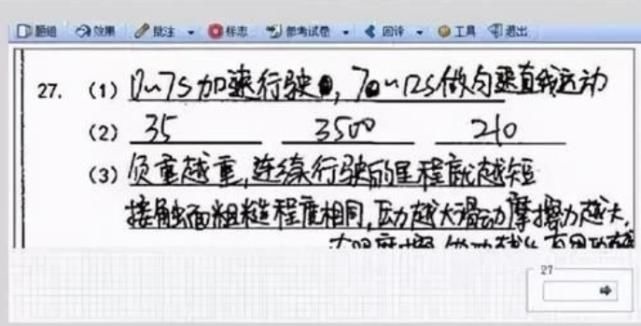 题组 效果 批注 标志 参考试卷 回评 工具 退出
27. (1) 0~7s加速行驶, 7~12s做匀速直线运动
(2) 35 3500 210
(3) 负重越重,连续行驶的里程就越短
接触面粗糙程度相同,压力越大滑动摩擦力越大,
27